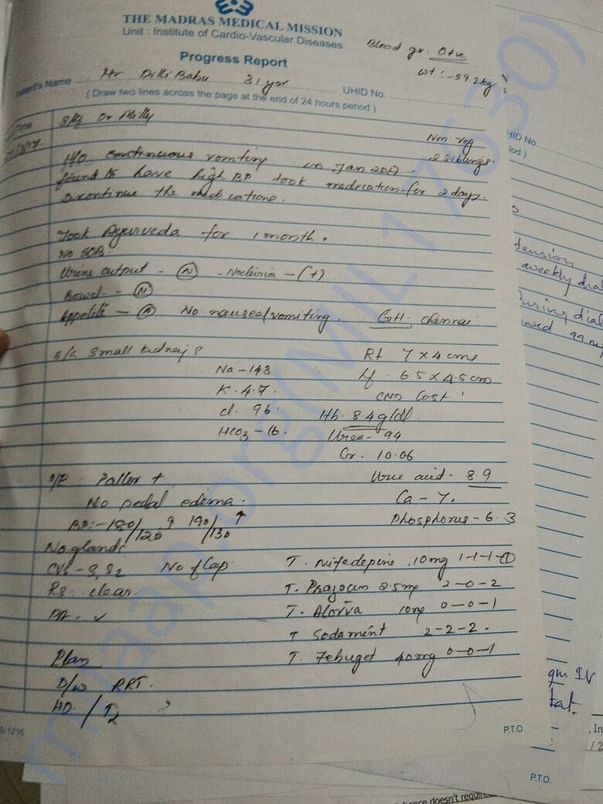 THE MADRAS MEDICAL MISSION
Unit : Institute of Cardio-Vascular Diseases
Progress Report
Blood gr. O+ve
wt :- 59.2kg
Patient's Name Mr Dilli Babu 31 yrs UHID No.
( Draw two lines across the page at the end of 24 hours period )
S/B Dr Milly
Non veg
2 siblings.
H/O continuous vomiting in Jan 2017
found to have high BP took medication for 2 days.
Discontinue the medications.
Took Ayurveda for 1 month.
No SOB
Urine output - (N) - Nocturia - (+)
Bowel - (N)
Appetite - (N) No nausea/vomiting. GH: Chennai
B/L Small kidneys Rt 7 x 4 cms
Na - 143 Lf 6.5 x 4.5 cm
K - 4.7
Cl. 96 Hb. 8.4 g/dl
HCO3 - 16. Urea - 94
Cr. 10.06
O/E Pallor + Uric acid - 8.9
No pedal edema. Ca - 7.
BP:- 180/120 190/130 ↑ Phosphorus - 6.3
No glands
CVS - S1 S2 No flap T. Nifedepine 10mg 1-1-1-1
RS: clear. T. Prazocin 2.5mg 2-0-2
PA - ✓ T. Atorva 10mg 0-0-1
T Sodamint 2-2-2.
Plan T. Febuget 40mg 0-0-1
D/W RRT.
HD /
P.T.O.
HID No.
tension
weekly dial
During dial
gm IV
stat.
P.T.O.
miaap.org(MIL17530)